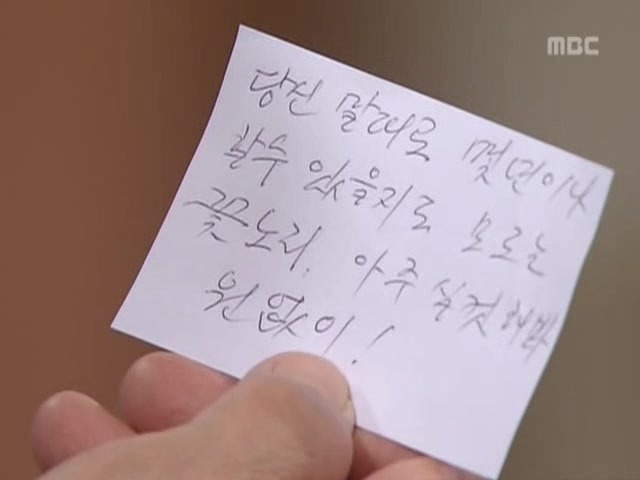 MBC
당신 말대로 몇년이나
할수 있을지도 모르는
꽃놀리. 아주 실컷 해봐
원없이!